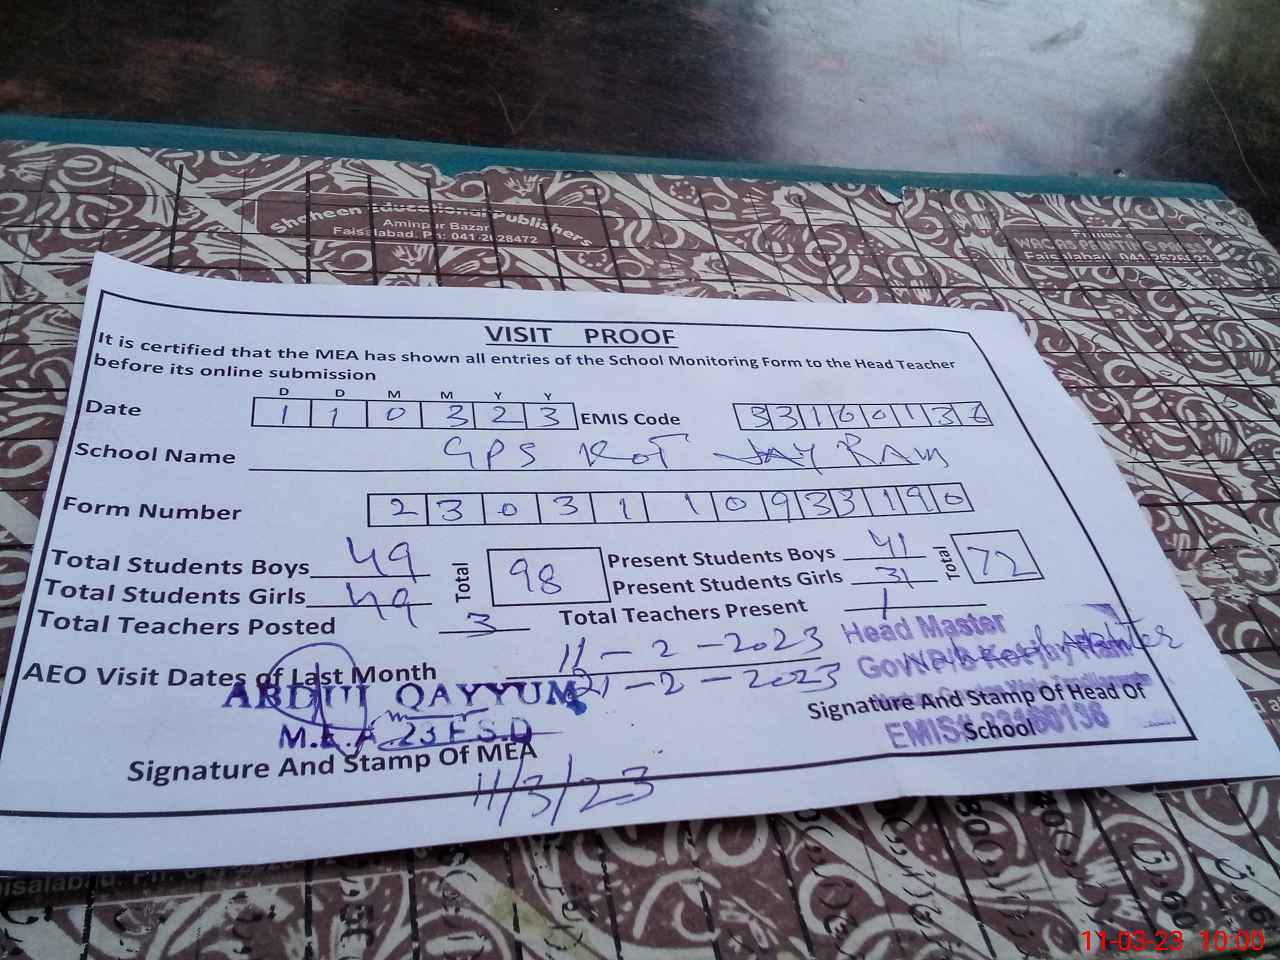 Shaheen Educational Publishers
Aminpur Bazar
Faisalabad. Ph: 041-2628472
Faisalabad. 041-2626823
VISIT PROOF
It is certified that the MEA has shown all entries of the School Monitoring Form to the Head Teacher
before its online submission
D D M M Y Y
Date 1 1 0 3 2 3 EMIS Code 3 3 1 6 0 1 3 6
School Name GPS KOT JAY RAM
Form Number 2 3 0 3 1 1 0 9 3 3 1 9 0
Total Students Boys 49 Total 98 Present Students Boys 41 Total 72
Total Students Girls 49 Present Students Girls 31
Total Teachers Posted 3 Total Teachers Present 1
AEO Visit Dates of Last Month 11-2-2023
21-2-2023
Head Master
ABDUL QAYYUM
M.E.A. 23 F.S.D
Signature And Stamp Of MEA
11/3/23
Signature And Stamp Of Head Of
School
EMIS
11-03-23 10:00